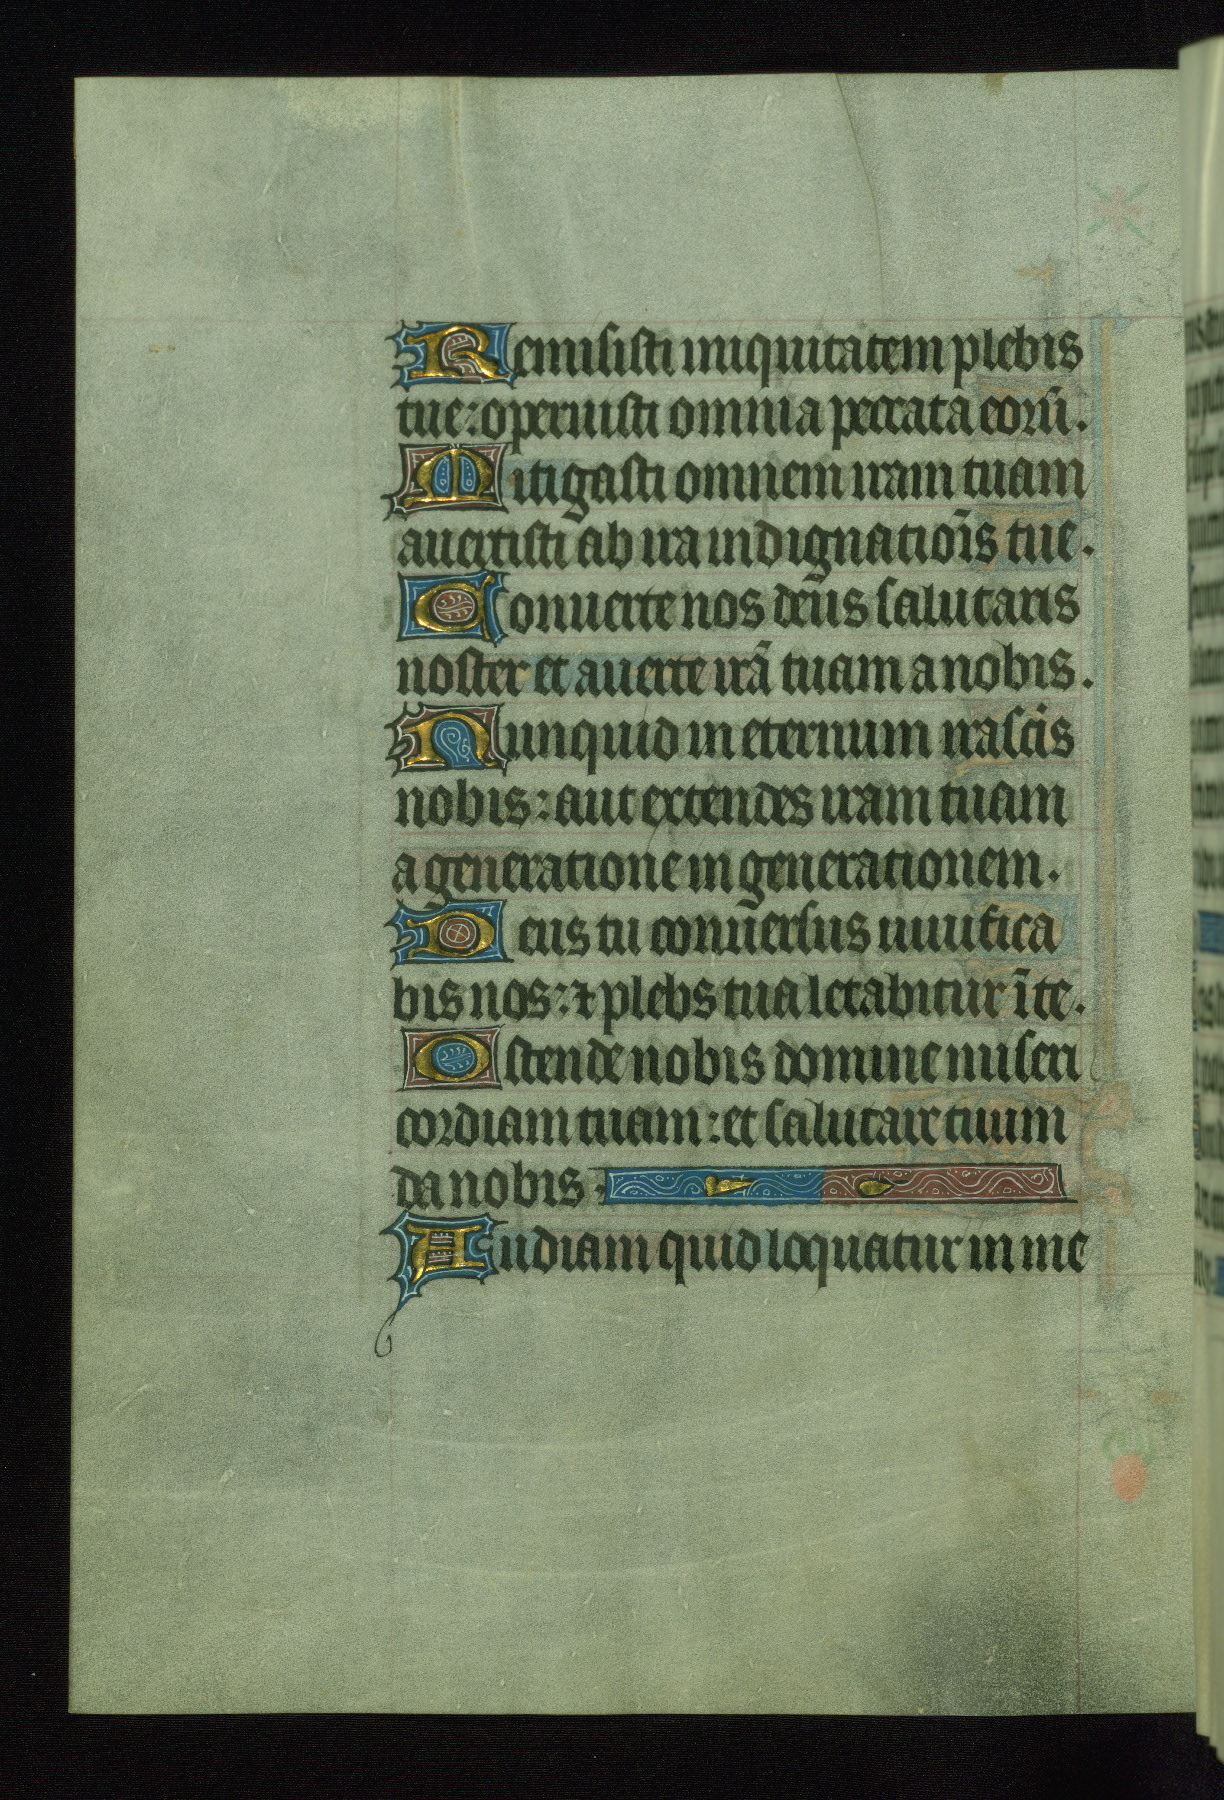 Remisisti iniquitatem plebis
tue: operuisti omnia peccata eorū.
Mitigasti omnem iram tuam
auertisti ab ira indignatiōis tue.
Conuerte nos deus salutaris
noster et auerte irā tuam a nobis.
Nunquid in eternum irascis
nobis: aut extendes iram tuam
a generatione in generationem.
Deus tu conuersus uiuifica
bis nos: ⁊ plebs tua letabitur ī te.
Ostende nobis domine miseri
cordiam tuam: et salutare tuum
da nobis.
Audiam quid loquatur in me